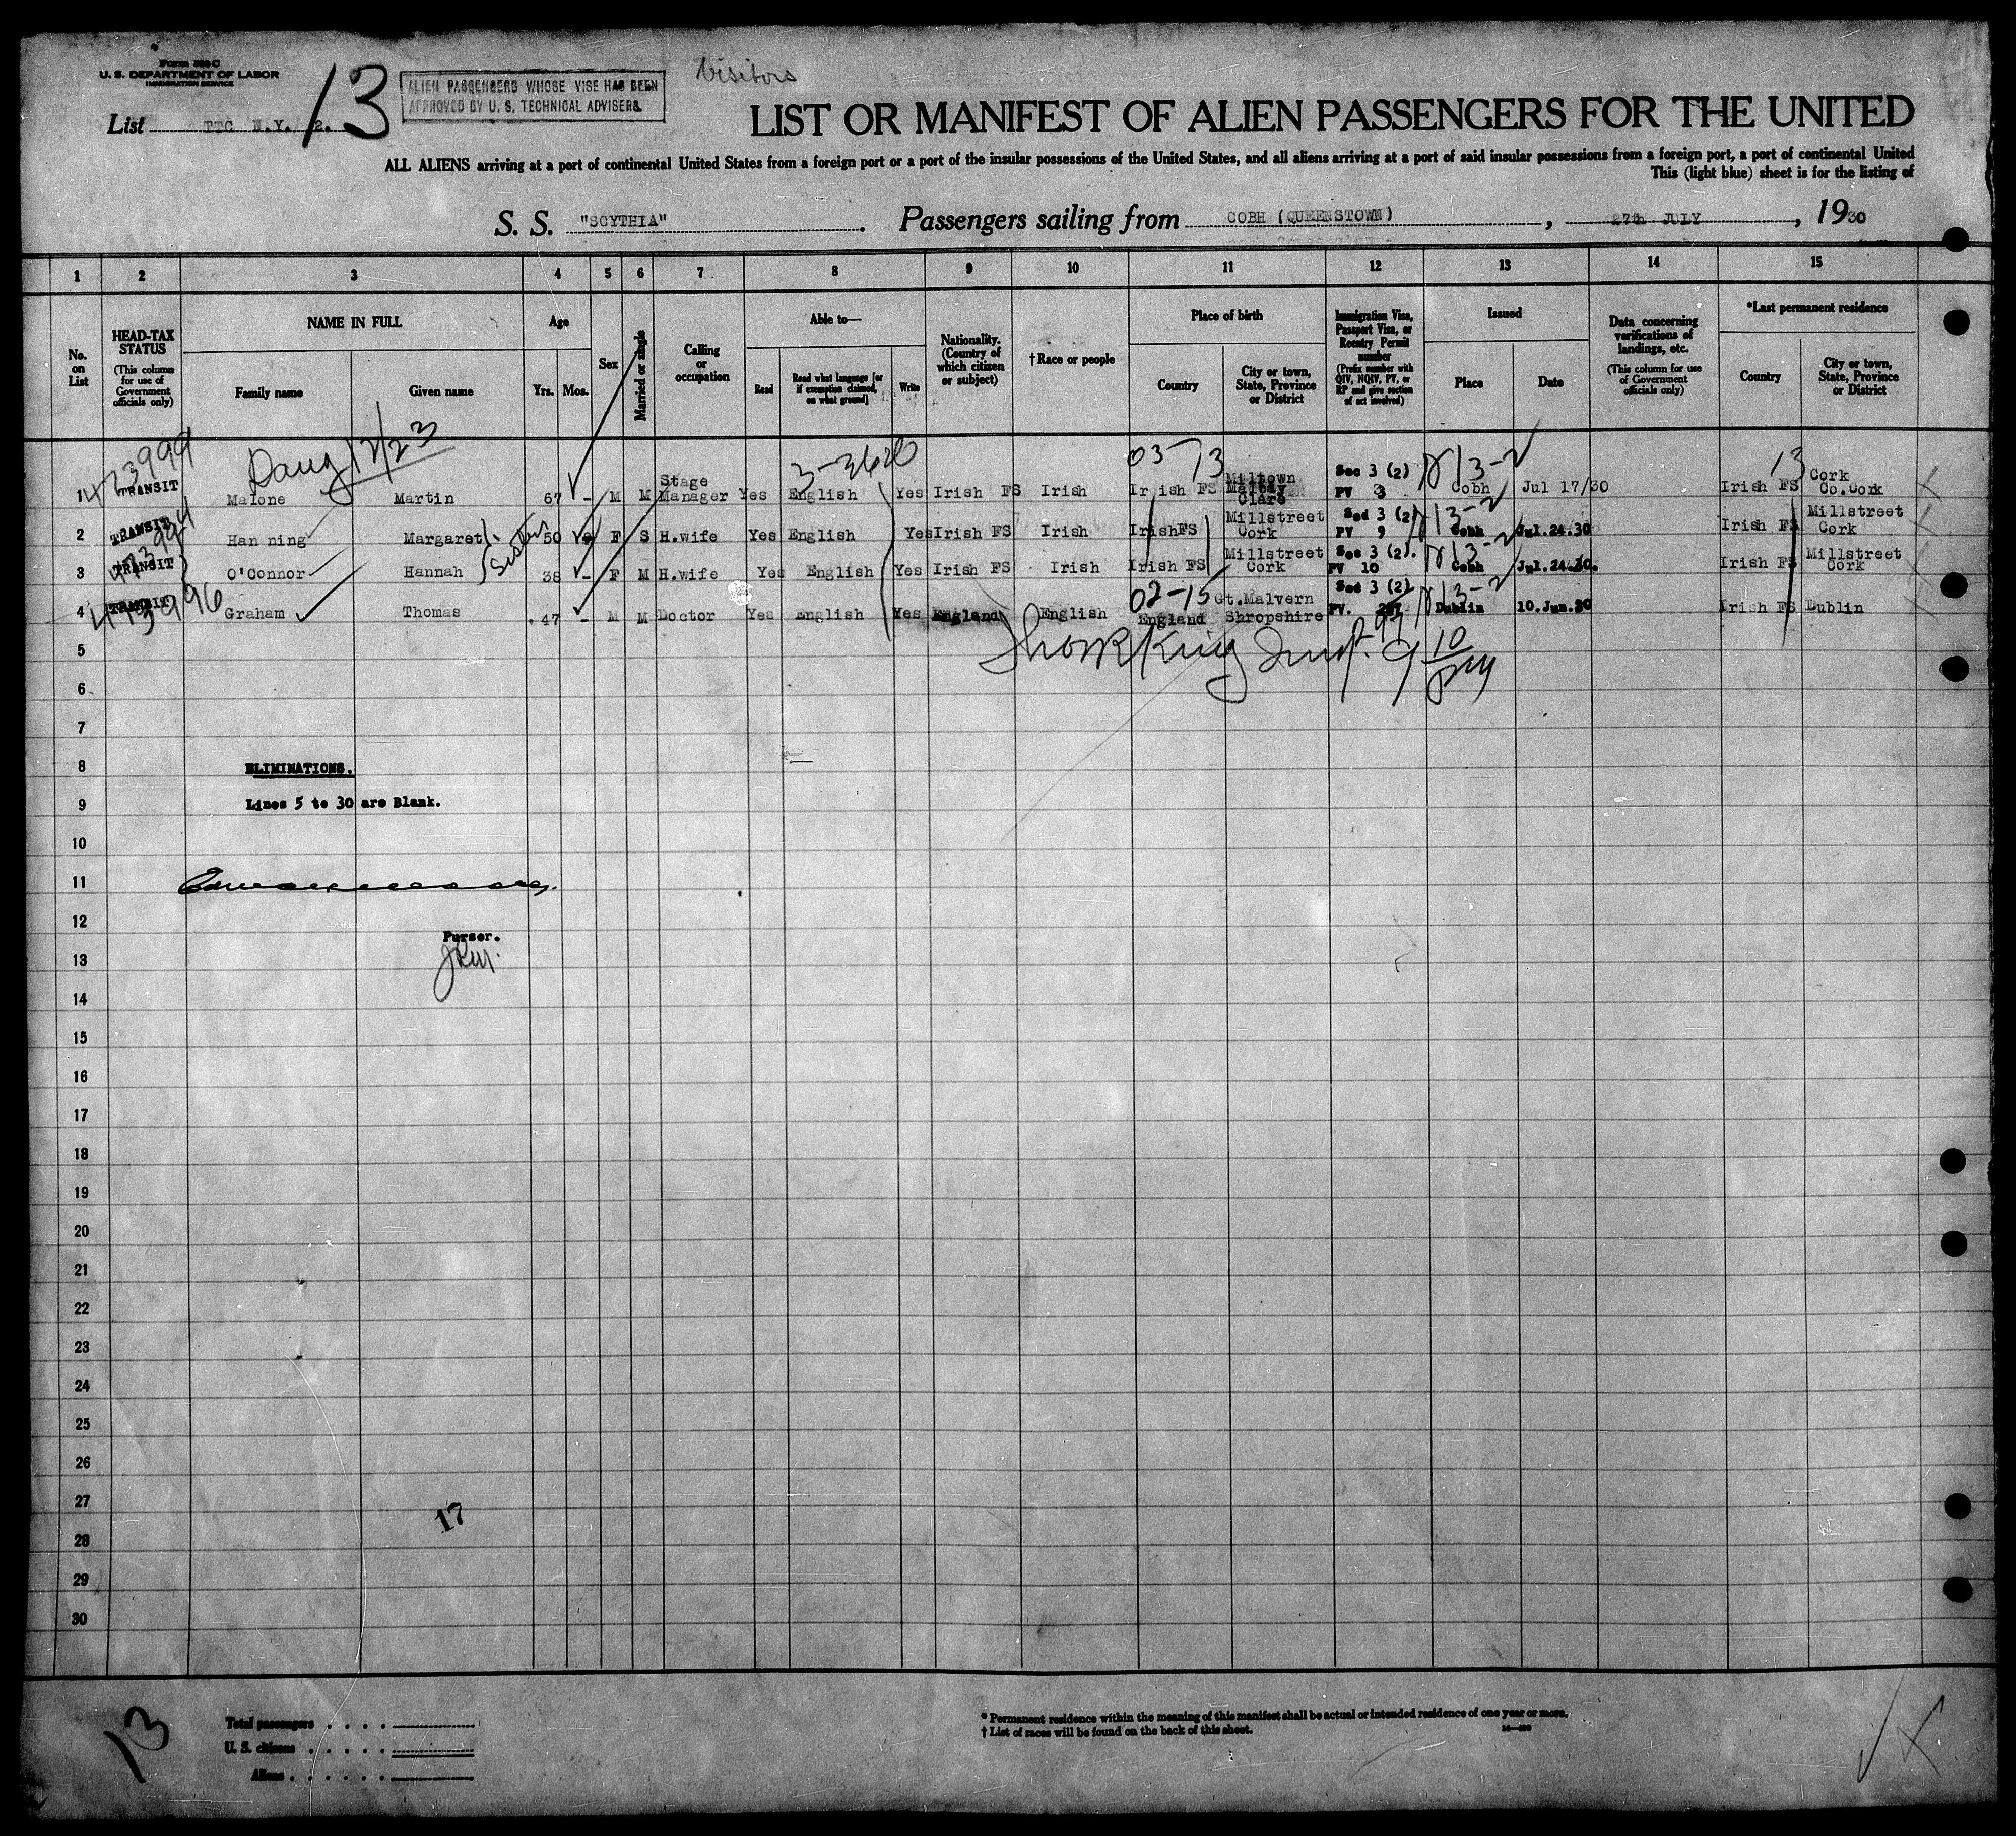 Form 500 C
U. S. DEPARTMENT OF LABOR
IMMIGRATION SERVICE
List TTC N.Y. /2.
13
ALIEN PASSENGERS WHOSE VISE HAS BEEN
APPROVED BY U. S. TECHNICAL ADVISERS.
Visitors
LIST OR MANIFEST OF ALIEN PASSENGERS FOR THE UNITED
ALL ALIENS arriving at a port of continental United States from a foreign port or a port of the insular possessions of the United States, and all aliens arriving at a port of said insular possessions from a foreign port, a port of continental United
This (light blue) sheet is for the listing of
S. S. "SCYTHIA". Passengers sailing from COBH (QUEENSTOWN), 27th JULY, 1930
1 2 3 4 5 6 7 8 9 10 11 12 13 14 15
No. on List
HEAD-TAX STATUS (This column for use of Government officials only)
NAME IN FULL
Family name
Given name
Age
Yrs. Mos.
Sex
Married or single
Calling or occupation
Able to—
Read
Read what language [or if exemption claimed, on what ground]
Write
Nationality. (Country of which citizen or subject)
†Race or people
Place of birth
Country
City or town, State, Province or District
Immigration Visa, Passport Visa, or Reentry Permit number (Prefix number with QIV, NQIV, PV, or RP and give section of act involved)
Issued
Place
Date
Data concerning verifications of landings, etc. (This column for use of Government officials only)
*Last permanent residence
Country
City or town, State, Province or District
12/23
3-3620
03-73
13-2
13
1 TRANSIT Malone Martin 67 - M M Stage Manager Yes English Yes Irish FS Irish Irish FS Miltown Malbay Clare Sec 3 (2) PV 3 Cobh Jul 17/30 Irish FS Cork Co.Cork
13-2
2 TRANSIT Hanning Margaret 50 F S H.wife Yes English Yes Irish FS Irish IrishFS Millstreet Cork Sec 3 (2) PV 9 Cobh Jul.24.30 Irish FS Millstreet Cork
Sister
13-2
3 TRANSIT O'Connor Hannah 38 - F M H.wife Yes English Yes Irish FS Irish Irish FS Millstreet Cork Sec 3 (2). PV 10 Cobh Jul.24.30. Irish FS Millstreet Cork
02-15
13-2
4 TRANSIT Graham Thomas 47 - M M Doctor Yes English Yes England English England Gt.Malvern Shropshire Sec 3 (2) PV. Dublin 10.Jun.30 Irish FS Dublin
473996
King Insp.
5
6
7
8
ELIMINATIONS.
9
Lines 5 to 30 are Blank.
10
11
12
Purser.
13
14
15
16
17
18
19
20
21
22
23
24
25
26
27
17
28
29
30
13
Total passengers
U. S. citizens
Aliens
* Permanent residence within the meaning of this manifest shall be actual or intended residence of one year or more.
† List of races will be found on the back of this sheet.